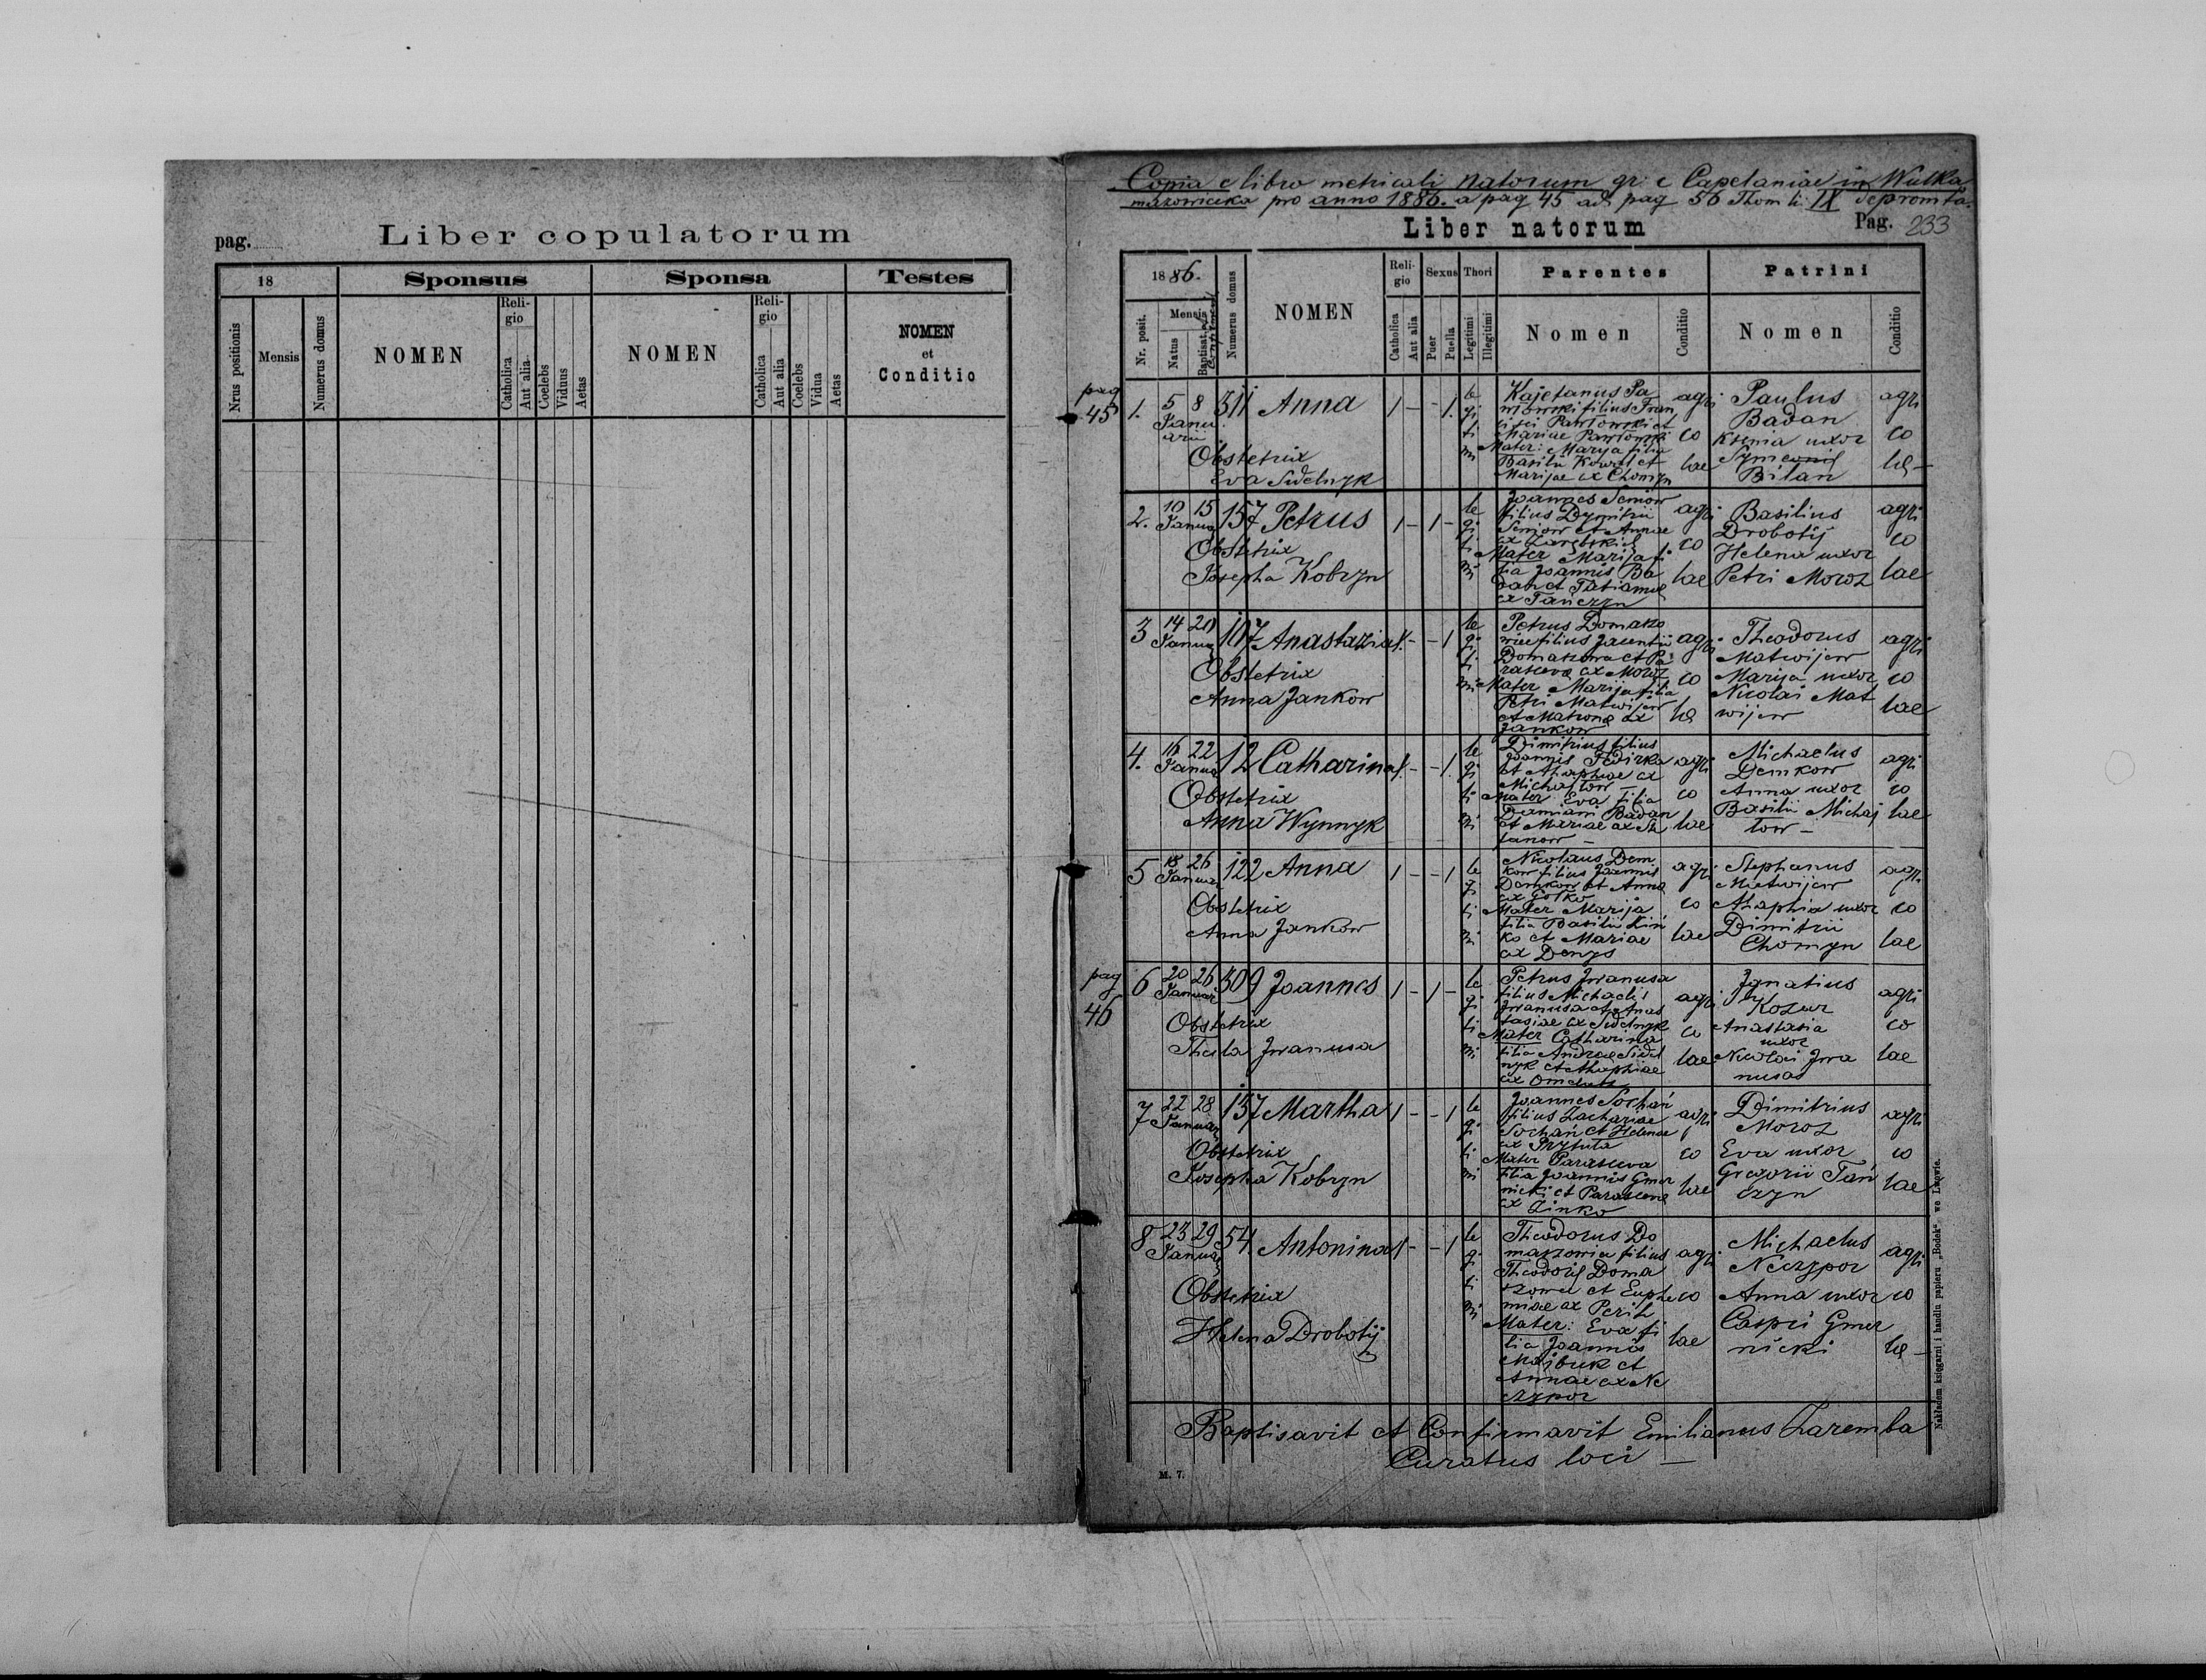 pag.
Liber copulatorum
18
Sponsus
Sponsa
Testes
Nrus positionis
Mensis
Numerus domus
NOMEN
Reli-
gio
Catholica
Aut alia
Coelebs
Viduus
Aetas
NOMEN
Reli-
gio
Catholica
Aut alia
Coelebs
Vidua
Aetas
NOMEN
et
Conditio
Copia e libro metricali natorum gr: c Capelaniae in Wulka
mazowiecka pro anno 1886. a pag 45 ad pag 56 Thom li: IX depromta.
Liber natorum
Pag. 233
1886.
Nr. posit.
Mensis
Natus
Baptisat. et
Numerus domus
NOMEN
Reli-
gio
Catholica
Aut alia
Sexus
Puer
Puella
Thori
Legitimi
Illegitimi
Parentes
Nomen
Conditio
Patrini
Nomen
Conditio
pag
45
1. 5 8 311 Anna 1 - - 1.
Janu
arii
Obstetrix
Eva Sidelnyk
le
gi
ti
mi
Kajetanus Pa
filius Fran
Pawłowski et
Mariae Pawłowski
Mater: Marya filia
Basilii Kowal et
Marijae ex Chomyn
agri
co
lae
Paulus
Badan
Ksenia uxor
Bilan
agri
co
2. 10 15 157 Petrus 1 - 1 -
Janua
Obstetrix
Josepha Kobryn
le
gi
ti
mi
Joannes Seniow
filius Dymitrii
Seniow et Annae
Mater Marija fi
lia Joannis Ba
dan et Tatianae
ex Tańczyn
agri
co
lae
Basilius
Drobotij
Helena uxor
Petri Moroz
agri
co
lae
3 14 20 107 Anastazia 1. - - 1
Janua
Obstetrix
Anna Jankow
le
gi
ti
mi
Petrus Domasz
filius
Domaszowa et Pa
rasceva ex Moroz
Mater Marija filia
Petri Matwijew
ex
Jankow
agri
co
Theodorus
Matwijew
Marija uxor
Nicolai Mat
wijew
agri
co
lae
4. 16 22 12 Catharina 1. - - 1.
Janua
Obstetrix
Anna Wynnyk
le
gi
ti
mi
Dimitrius filius
Joannis Fedirka
et Ahaphiae ex
Michajłow -
Mater Eva filia
Damiani Badan
et Mariae ex
agri
co
lae
Michaelus
Demkow
Anna uxor
Basilii Michaj
low -
agri
co
lae
5 18 26 122 Anna 1 - - 1
Janua
Obstetrix
Anna Jankow
le
gi
ti
mi
Nicolaus Dem
kow filius Joannis
Demkow et Annae
Mater Marija
filia Basilii Zin
ko et Mariae
ex Denys
agri
co
lae
Stephanus
Matwijew
Ahaphia uxor
Dimitrii
Chomyn
agri
co
lae
pag
46
6 20 26 309 Joannes 1 - 1 -
Januar
Obstetrix
Thecla Jwanusa
le
gi
ti
mi
Petrus Jwanusa
filius Michaelis
Jwanusa et Anas
tasiae ex Sidelnyk
Mater Catharina
filia Andreae Sidel
nyk et Ahaphiae
agri
co
lae
Ignatius
Kozur
Anastasia
uxor
Nicolai Jwa
nusas
agri
co
lae
7 22 28 157 Martha 1 - - 1
Januar
Obstetrix
Josepha Kobryn
le
gi
ti
mi
Joannes Sochań
filius Zachariae
Sochań et Helenae
ex Przytuła
Mater Parasceva
filia Joannis Gmer
nicki et Parascevae
ex Zinko
agri
co
lae
Dimitrius
Moroz
Eva uxor
Gregorii Tań
czyn
agri
co
lae
8 23 29 54. Antonina 1 - - 1
Janua
Obstetrix
Helena Drobotij
le
gi
ti
mi
Theodorus Do
maszowia filius
Theodori Doma
et Euphe
miae ex
Mater: Eva fi
lia Joannis
Majbuk et
Annae ex Ne
czypor
agri
co
lae
Michaelus
Neczypor
Anna uxor
Caspri Gmer
nicki
agri
co
Baptisavit et Confirmavit Emilianus Zaremba
Curatus loci -
M. 7.
Nakładem księgarni i handlu papieru „Bodek“ we Lwowie.